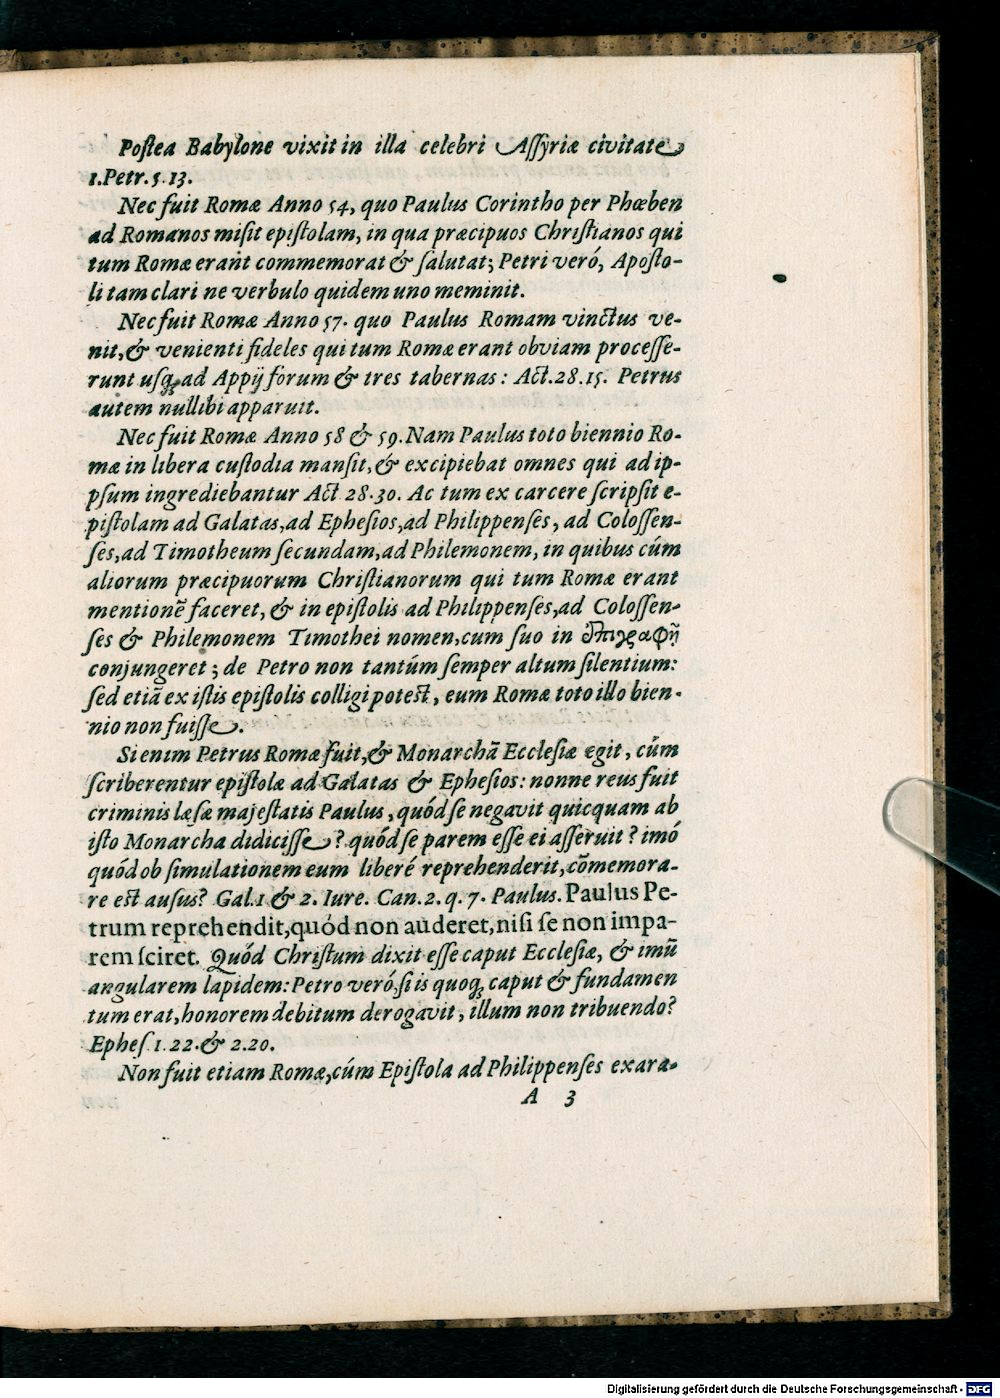 Postea Babylone vixit in illa celebri Aſſyriæ civitate
1.Petr.5.13.
Nec fuit Romæ Anno 54, quo Paulus Corintho per Phœben
ad Romanos miſit epiſtolam, in qua præcipuos Chriſtianos qui
tum Romæ erant commemorat & ſalutat; Petri veró, Apoſto-
li tam clari ne verbulo quidem uno meminit.
Nec fuit Romæ Anno 57. quo Paulus Romam vinctus ve-
nit, & venienti fideles qui tum Romæ erant obviam proceſſe-
runt uſq; ad Appij forum & tres tabernas: Act.28.15. Petrus
autem nullibi apparuit.
Nec fuit Romæ Anno 58 & 59. Nam Paulus toto biennio Ro-
mæ in libera cuſtodia manſit, & excipiebat omnes qui ad ip-
pſum ingrediebantur Act 28.30. Ac tum ex carcere ſcripſit e-
piſtolam ad Galatas, ad Epheſios, ad Philippenſes, ad Coloſſen-
ſes, ad Timotheum ſecundam, ad Philemonem, in quibus cúm
aliorum præcipuorum Chriſtianorum qui tum Romæ erant
mentionē faceret, & in epiſtolis ad Philippenſes, ad Coloſſen-
ſes & Philemonem Timothei nomen, cum ſuo in ἐπιγραφῇ
conjungeret; de Petro non tantúm ſemper altum ſilentium:
ſed etiā ex iſtis epiſtolis colligi poteſt, eum Romæ toto illo bien-
nio non fuiſſe.
Si enim Petrus Romæ fuit, & Monarchā Eccleſiæ egit, cúm
ſcriberentur epiſtolæ ad Galatas & Epheſios: nonne reus fuit
criminis læſæ majeſtatis Paulus, quód ſe negavit quicquam ab
iſto Monarcha didiciſſe? quód ſe parem eſſe ei aſſeruit? imó
quód ob ſimulationem eum liberé reprehenderit, cōmemora-
re eſt auſus? Gal.1 & 2. Iure. Can.2. q. 7. Paulus. Paulus Pe-
trum reprehendit, quód non auderet, niſi ſe non impa-
rem ſciret. Quód Chriſtum dixit eſſe caput Eccleſiæ, & imū
angularem lapidem: Petro veró, ſi is quoq; caput & fundamen
tum erat, honorem debitum derogavit, illum non tribuendo?
Epheſ.1.22. & 2.20.
Non fuit etiam Romæ, cúm Epiſtola ad Philippenſes exara-
A 3
Digitalisierung gefördert durch die Deutsche Forschungsgemeinschaft - DFG